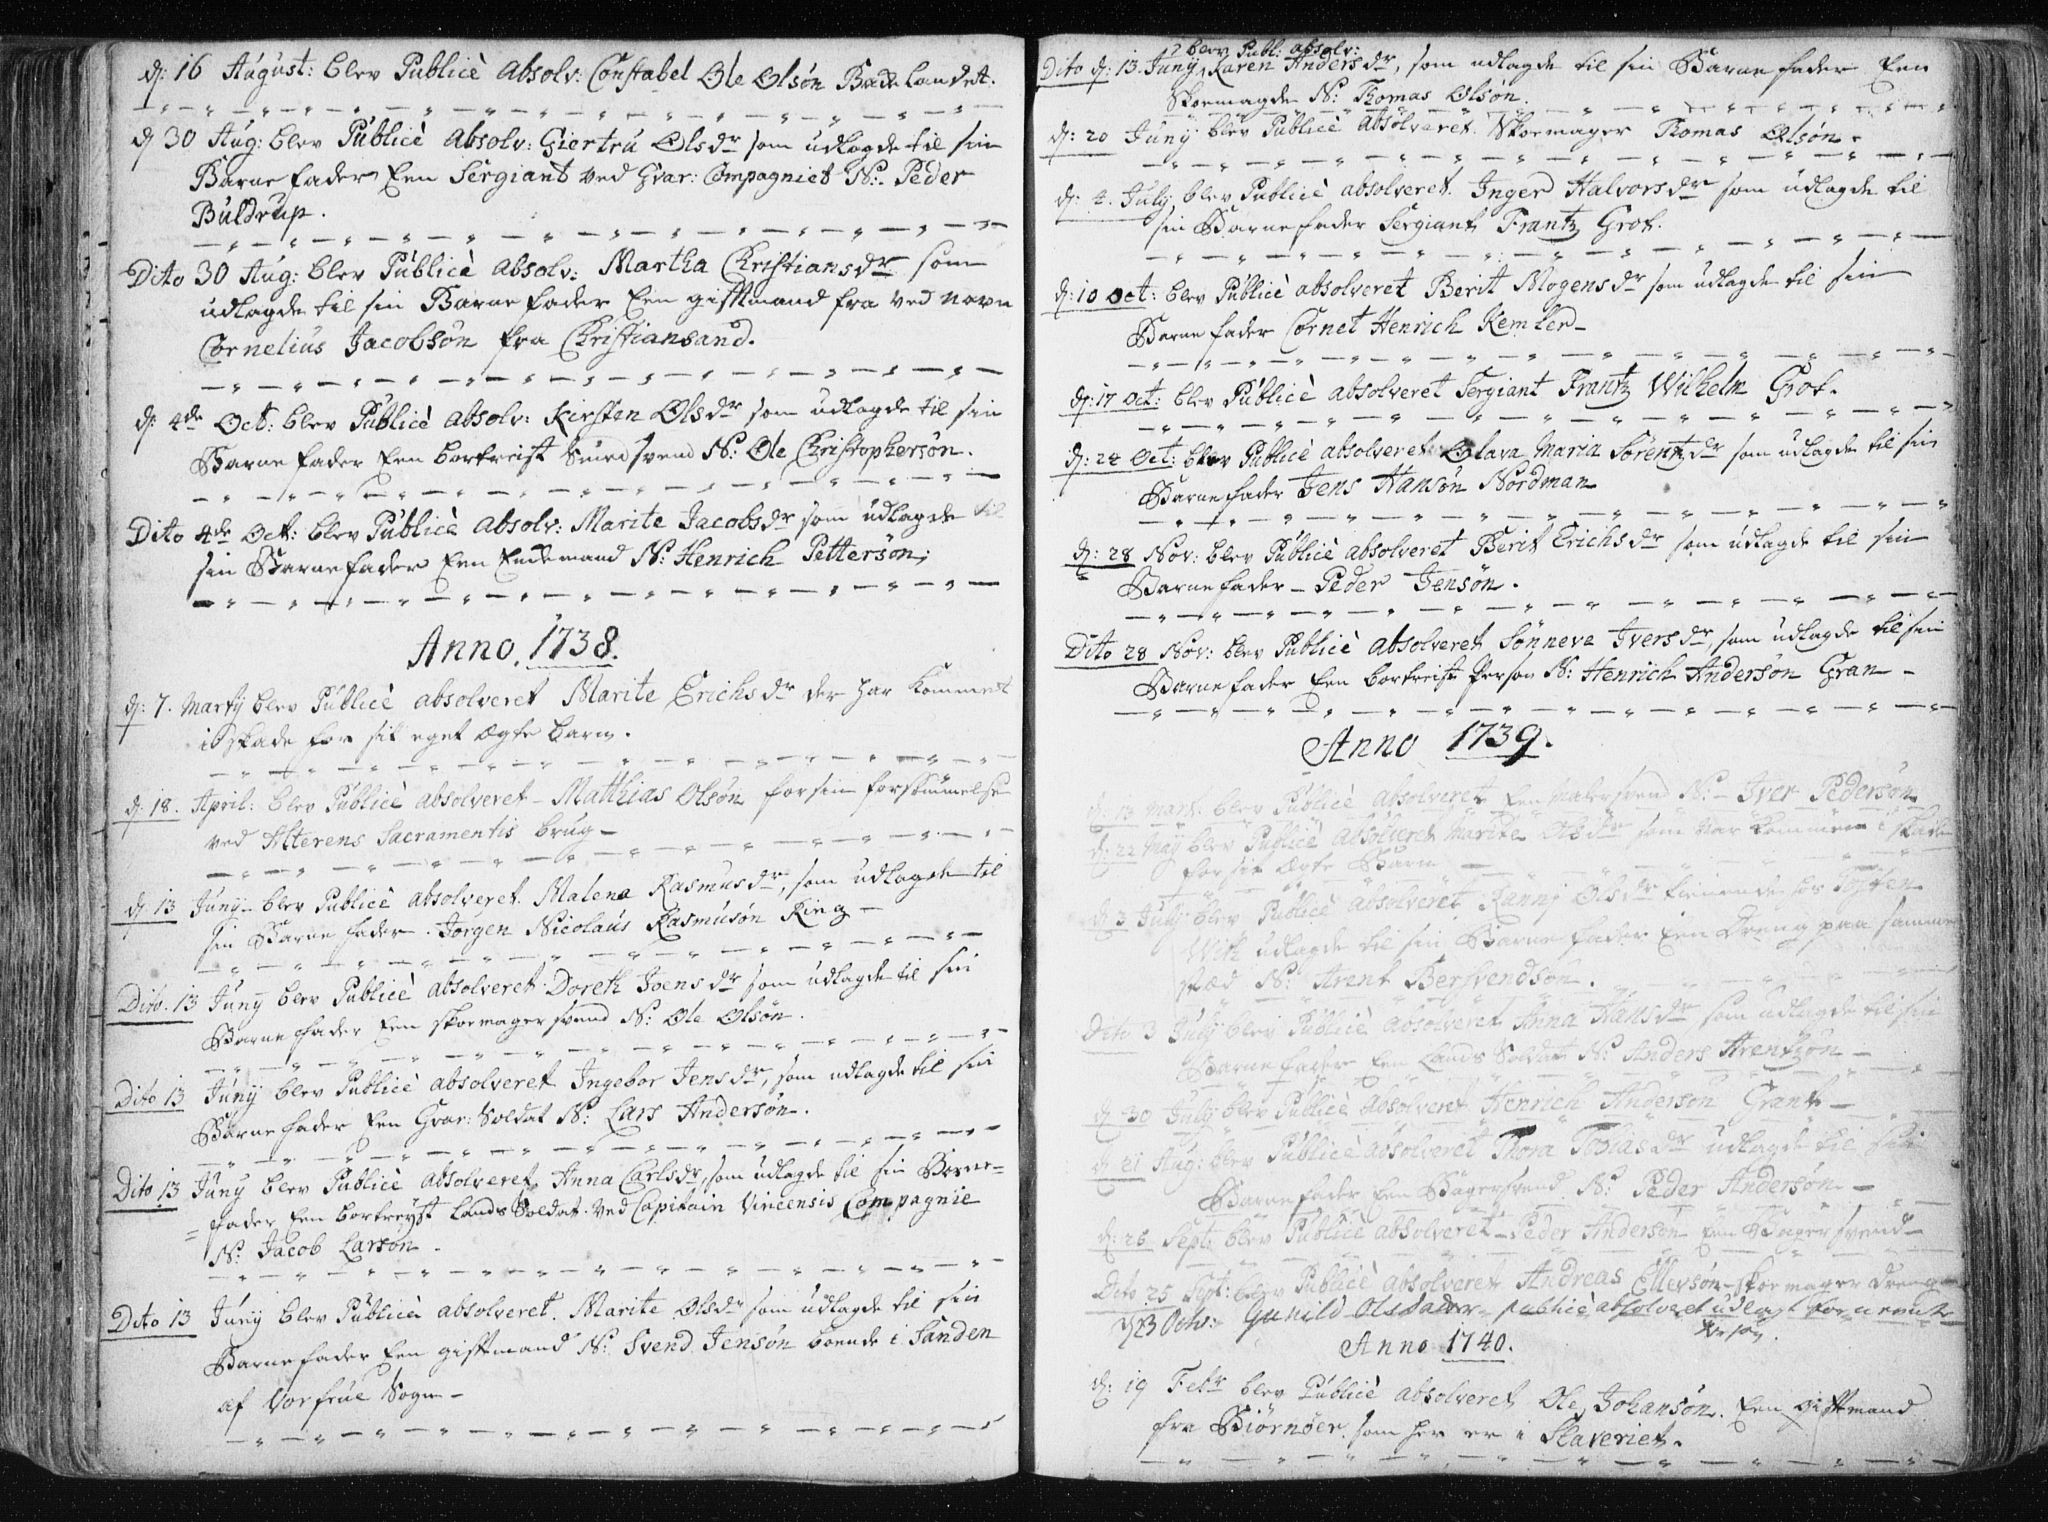 d: 16 August: blev Publicè Absolv: Constabel Ole Olsøn Badelandet.
d 30 Aug: blev Publicè Absolv: Giertru Olsdr som udlagde til sin
Barne fader Een Sergiant ved Gvar: Compagniet N: Peder
Buldrup.
Dito 30 Aug: blev Publicè Absolv: Martha Christiansdr som
udlagde til sin Barne fader Een gifftmand fra ved navn
Cornelius Jacobsøn fra Christiansand.
d: 4de Oct: blev Publicè Absolv: Kirsten Olsdr som udlagde til sin
Barne fader Een bortreist Smedsvend N: Ole Christophersøn.
Dito 4de Oct: blev Publicè Absolv: Marite Jacobsdr som udlagde til
sin Barne fader Een Enckemand N: Henrich Pettersøn;
Anno. 1738.
d: 7. Martÿ blev Publicè absolveret Marite Erichsdr der har kommet
i skade for sit eget Ægte barn.
d: 18. April: blev Publicè absolveret Matthias Olsøn for sin forsømmelse
ved Alterens Sacramentis brug
d 13 Junÿ blev Publicè absolveret. Malena Rasmusdr, som udlagde til
sin Barne fader. Jørgen Nicolaus Rasmusøn Ring
Dito. 13 Junÿ blev Publicè absolveret Doreth Joensdr som udlagde til sin
Barne fader Een skoemager svend N: Ole Olsøn.
Dito 13 Junÿ blev Publicè absolveret Ingebor Jensdr, som udlagde til sin
Barne fader Een Gvar: Soldat N: Lars Andersøn.
Dito 13 Junÿ blev Publicè absolveret Anna Carlsdr, som udlagde til sin Barne-
fader Een bortreÿst Lands Soldat ved Capitain Vincensis Compagnie
N: Jacob Larsøn.
Dito 13 Junÿ blev Publicè absolveret. Marite Olsdr som udlagde til sin
Barne fader Een gifftmand N: Svend Jensøn boende i Sanden
af Vorfrue Sogn
blev Publ: absolv:
Dito d: 13. Junÿ Karen Andersdr, som udlagde til sin Barne fader Een
Skoemagde N: Thomas Olsøn.
d: 20 Junÿ: blev Publicè Absolveret. Skoemager Thomas Olsøn.
d: 4. Julÿ, blev Publicè absolveret. Inger Halvorsdr som udlagde til
sin Barne fader Sergiant Frantz Grot.
d: 10 Oct: blev Publicè absolveret Berit Mogensdr som udlagde til sin
Barne fader Cornet Henrich Kemler
d: 17 Oct: blev Publicè absolveret Sergiant Frantz Wilhelm Grot.
d: 24 Oct: blev Publicè absolveret Olava Maria Sørentzdr som udlagde til sin
Barne fader Jens Hansøn Nordman
d: 28 Nov: blev Publicè absolveret Berit Erichsdr som udlagde til sin
Barne fader Peder Jensøn.
Dito 28 Nov: blev Publicè absolveret Sønneva Iversdr, som udlagde til sin
Barne fader Een bortreist Person N: Henrich Andersøn Gran
Anno 1739.
d: 13 Mart: blev Publicè absolveret Een svend N: Iver Pedersøn
d: 22 Maÿ blev Publicè absolveret Marite Olsdr som har kommen i skade
for sit Ægte Barn
d 3 Julÿ blev Publicè absolveret Ranni Olsdr tienende hos
With udlagde til sin Barne fader Een Dreng paa samme
stæd N: Arent Bersvendsøn.
Dito 3 Julÿ blev Publicè absolveret Anna Hansdr som udlagde til sin
Barne fader Een Lands Soldat N: Anders Arentzøn
d 30 Julÿ blev Publicè absolveret Henrich Andersøn Grant
d 21 Aug: blev Publicè absolveret Thora Tobiasdr udlagde til sin
Barne fader Een Bagersvend N: Peder Andersøn
d: 26 Sept: blev Publicè absolveret Peder Andersøn Een Bager svend
Dito 25 Sept: blev Publicè absolveret Andreas Ellevsøn skoemager Dreng
d 23 Octr: Gunild Olsdader publicè absolveret udlagt
Anno 1740.
d: 19 Febr blev Publicè absolveret Ole Johansøn. Een gifftmand
fra Biørnøer som her er i Slaveriet.